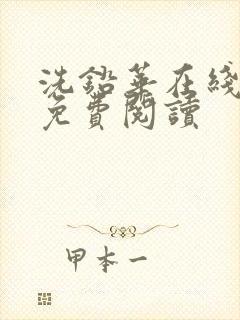 洗鉛華在綫
免費閱讀
甲本一